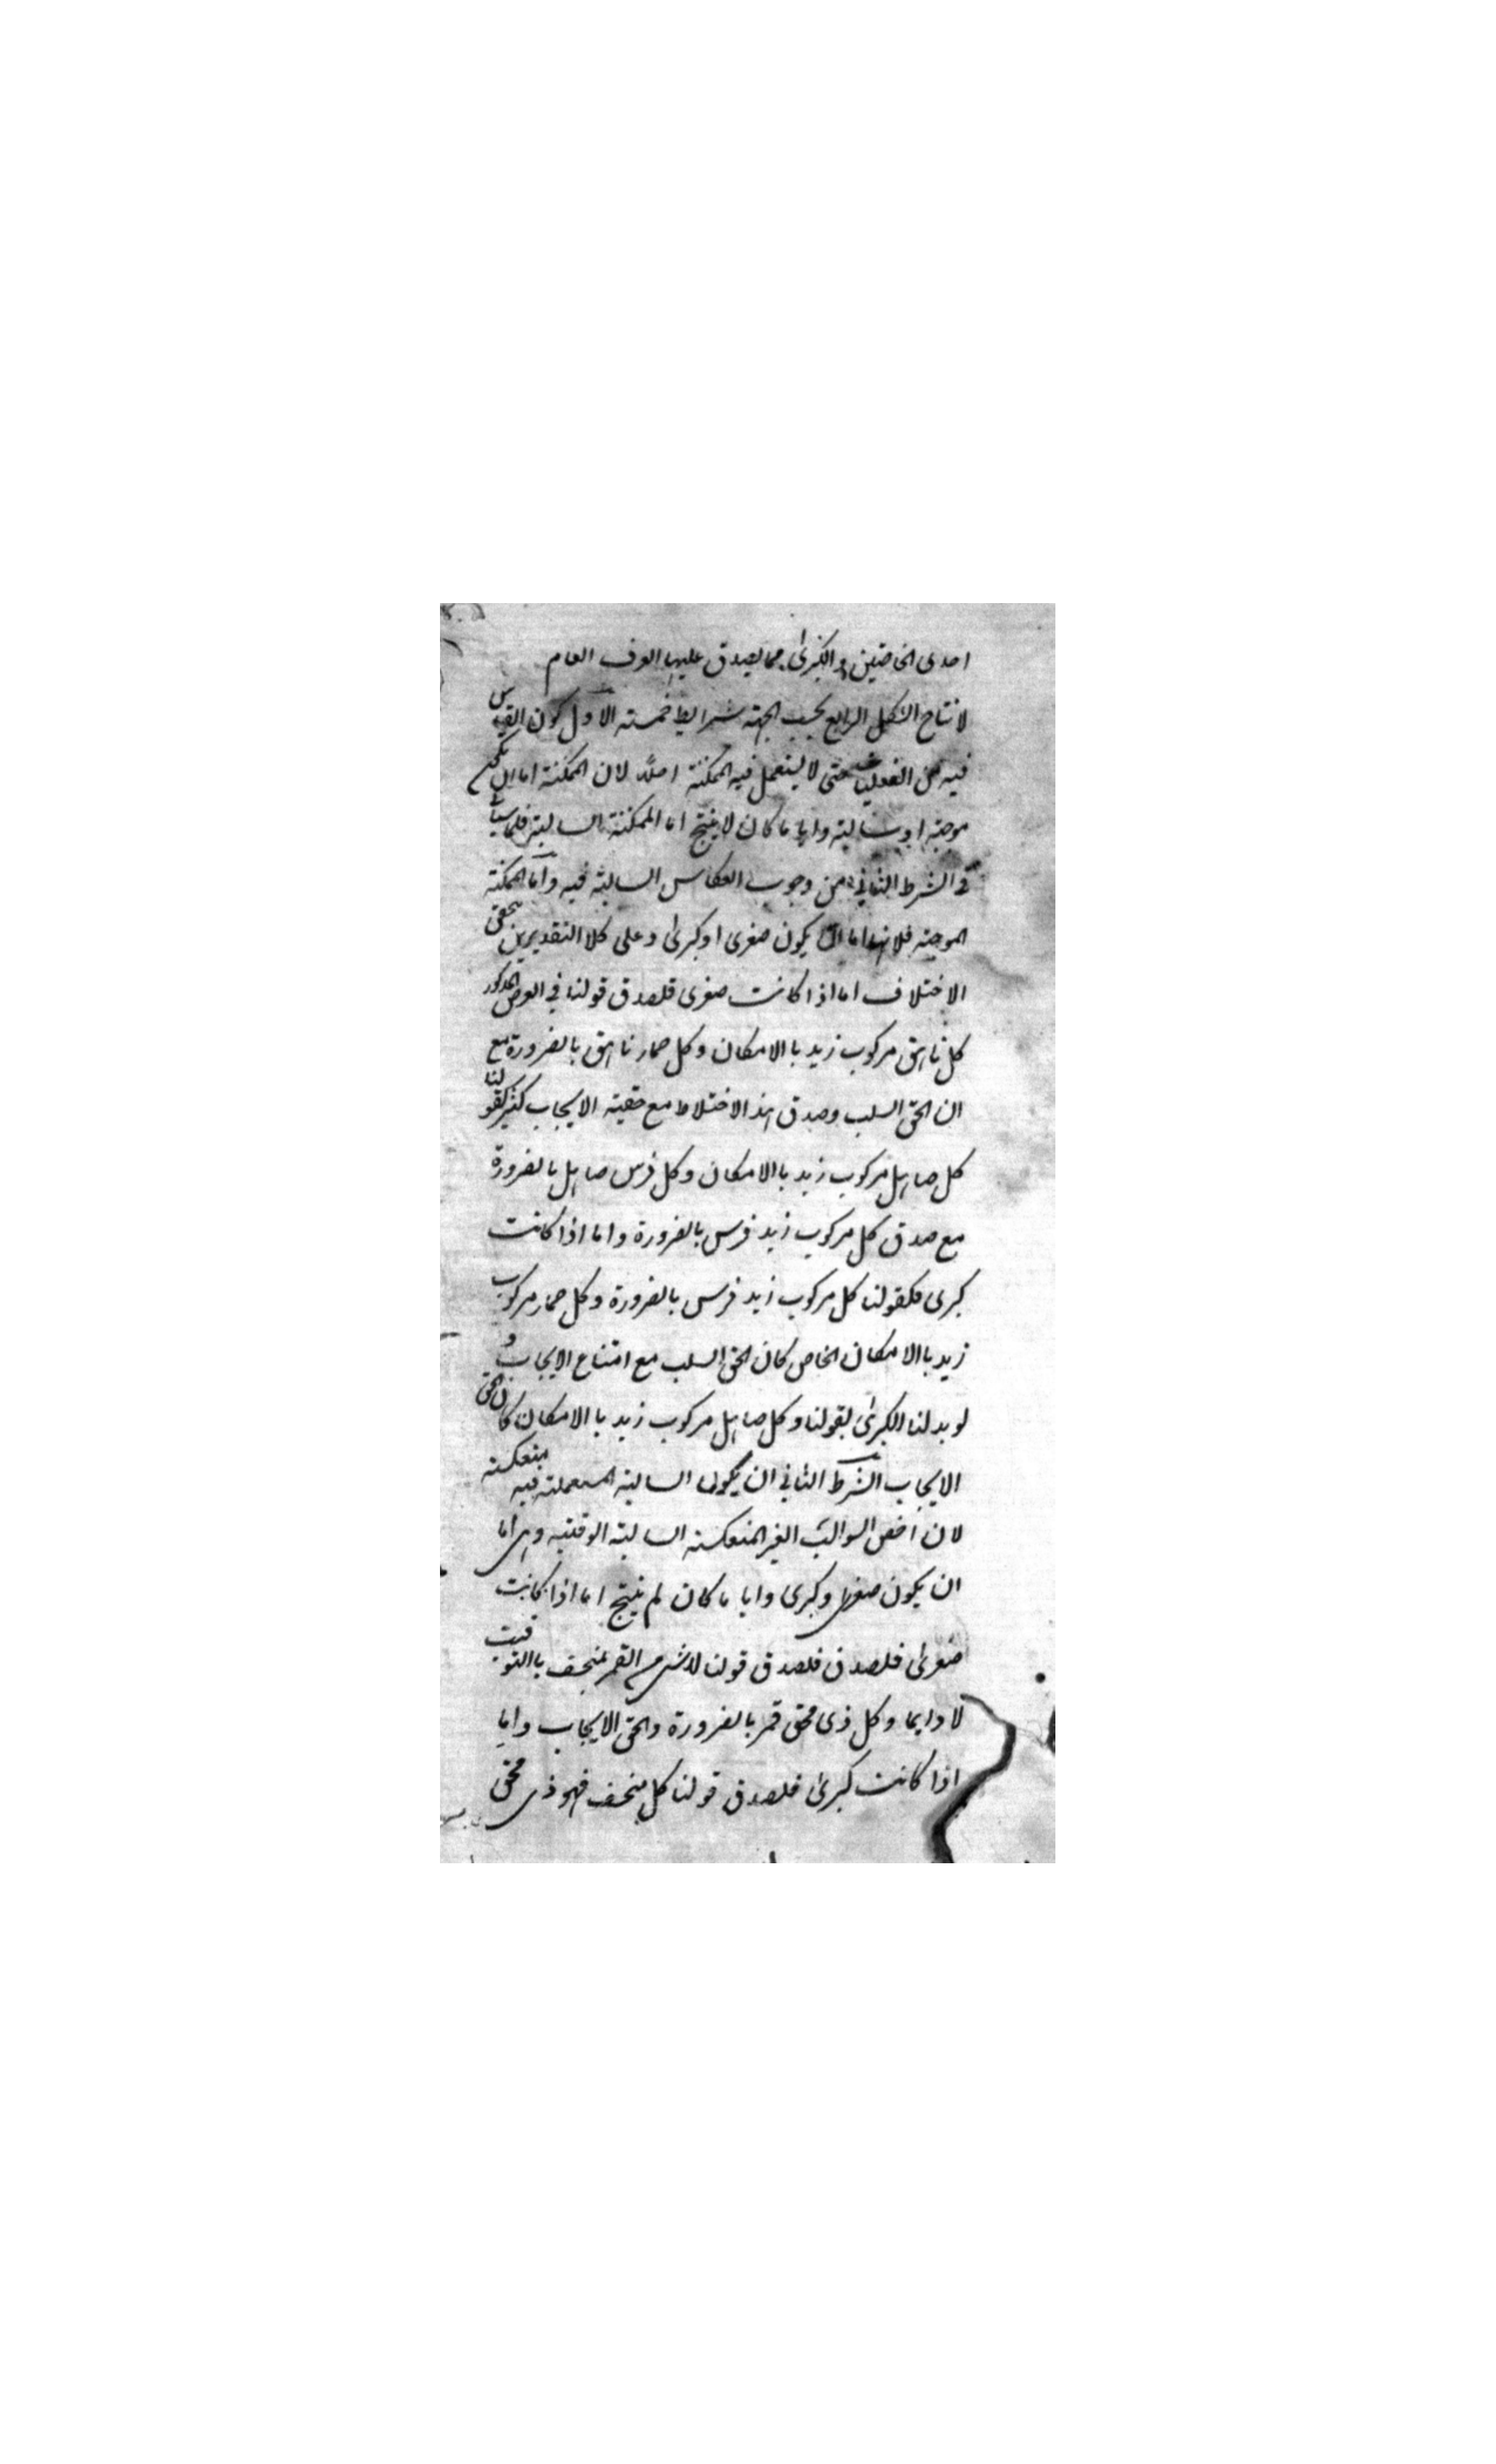 احدى الخاصتين والكبرى مما يصدق عليها العرف العام
لانتاج الشكل الرابع بحسب الجهة شرايط خمسة الاول كون القياس
فيه من الفعليات حتى لا يستعمل فيه الممكنة اصلا لان الممكنة اما ان يكون
موجبة او سالبة وايا ما كان لا ينتج اما الممكنة السالبة فلما سياتى
فى الشرط الثانى من وجوب انعكاس السالبة فيه واما الممكنة
الموجبة فلانها اما ان يكون صغرى او كبرى وعلى كلا التقديرين يتحقق
الاختلاف اما اذا كانت صغرى فلصدق قولنا فى الفرض المذكور
كل ناهق مركوب زيد باالامكان وكل حمار ناهق بالضرورة مع
ان الحق السلب وصدق هذ الاختلاط مع حقية الايجاب كثير كقولنا
كل صاهل مركوب زيد باالامكان وكل فرس صاهل بالضرورة
مع صدق كل مركوب زيد فرس بالضرورة واما اذا كانت
كبرى فكقولنا كل مركوب زيد فرس بالضرورة وكل حمار مركوب
زيد باالامكان الخاص كان الحق السلب مع امتناع الايجاب و
لو بدلنا الكبرى بقولنا وكل صاهل مركوب زيد باالامكان كان الحق
الايجاب الشرط الثانى ان يكون السالبة المستعملة فيه منعكسة
لان اخص السوالب الغير المنعكسة السالبة الوقتية وهى اما
ان يكون صغرى وكبرى وايا ما كان لم ينتج اما اذا كانت
صغرى فلصدق فلصدق قولنا لا شى من القمر بمنخسف باالتوقيت
لا دايما وكل ذى محق قمر بالضرورة والحق الايجاب واما
اذا كانت كبرى فلصدق قولنا كل منخسف فهو ذى محق